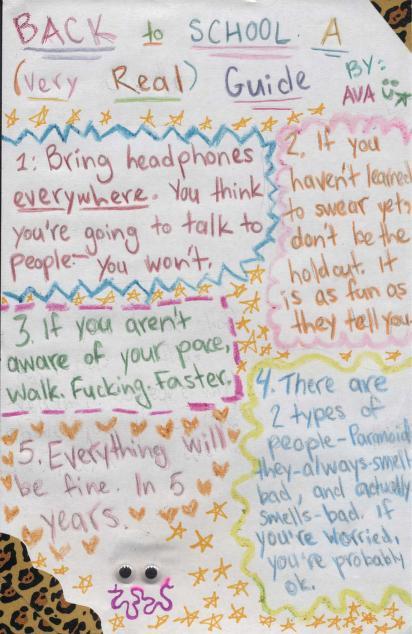 BACK to SCHOOL. A
(very Real) Guide
BY:
AVA
1: Bring headphones
everywhere. You think
you're going to talk to
people- You won't.
2. If you
haven't learned
to swear yet,
don't be the
holdout. It
is as fun as
they tell you.
3. If you aren't
aware of your pace,
Walk. Fucking. Faster.
4. There are
2 types of
people-Paranoid
they-always-smell
bad, and actually
smells-bad. If
you're worried,
you're probably
ok.
5. Everything will
be fine. In 5
years.